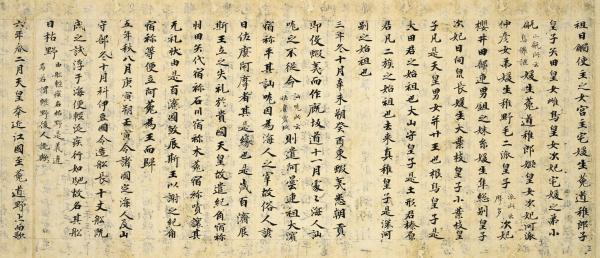 祖日觸使主之女宮主宅媛生菟道稚郎子
皇子矢田皇女雌鳥皇女次宅媛之弟小
甂媛生菟道稚郎姬皇女次妃河派
仲彥女弟媛生稚野毛二派皇子 次妃
櫻井田部連男鉏之妹糸媛生隼總別皇子
次妃日向泉長媛生大葉枝皇子小葉枝皇
子凡是天皇男女并廿王也根鳥皇子是
大田君之始祖也大山守皇子是土形君榛原
君凡二族之始祖也去來真稚皇子是深河
別之始祖也
三年冬十月辛未朔癸酉東蝦夷悉朝貢
即役蝦夷而作厩坂道十一月處々海人訕
哤之不從命 則遣阿曇連祖大濱
宿禰平其訕哤因為海人之宰故俗人諺
曰佐麼阿摩者其是緣也是歲百濟辰
斯王立之失礼於貴國天皇故遣紀角宿禰
羽田矢代宿禰石川宿禰木菟宿禰嘖讓其
无礼狀由是百濟國殺辰斯王以謝之紀角
宿禰等便立阿花為王而歸
五年秋八月庚寅朔壬寅令諸國定海人及山
守部冬十月科伊豆國令造船長十丈船既
成之試浮于海便輕泛疾行如馳故名其船
曰枯野 由船輕疾名枯野是義違焉若謂輕野後人訛歟
六年春二月天皇幸近江國至菟道野上而歌